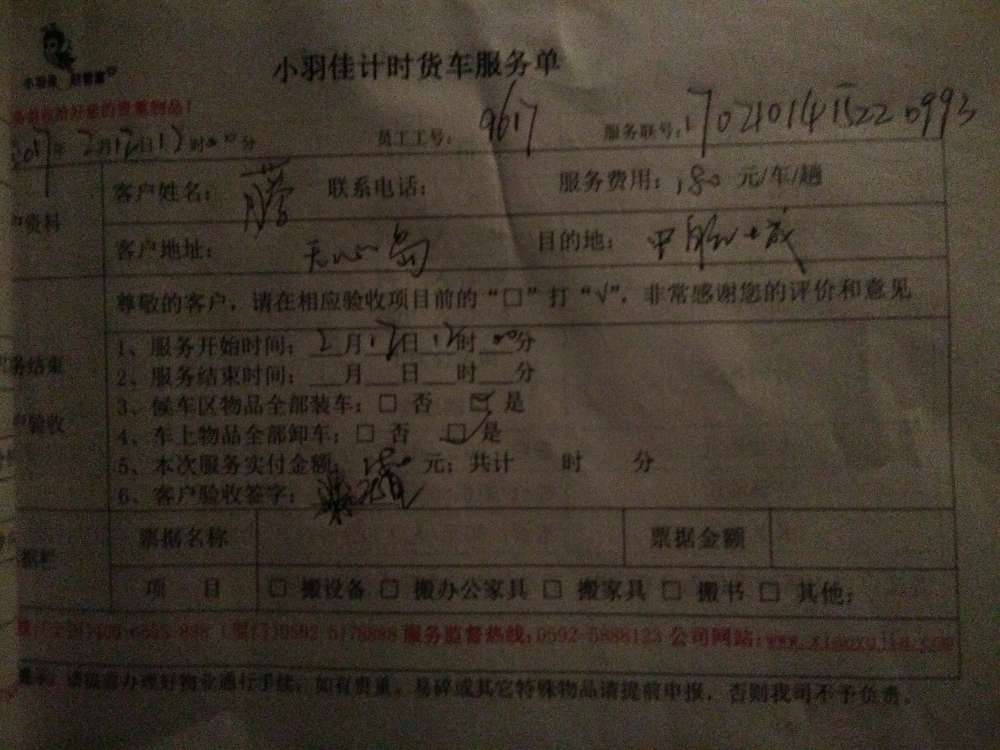 小羽佳计时货车服务单
小羽佳
2017年2月12日12时00分 员工工号:9617 服务联号:1702101415220993
客户姓名: 联系电话: 服务费用:180元/车/趟
资料
客户地址:天心岛 目的地:
尊敬的客户,请在相应验收项目前的“□”打“√”,非常感谢您的评价和意见
1、服务开始时间:2月12日12时00分
2、服务结束时间:___月___日___时___分
务结束
3、候车区物品全部装车:□ 否 ☑ 是
验收
4、车上物品全部卸车:□ 否 ☑ 是
5、本次服务实付金额:180元;共计 时 分
6、客户验收签字:
票据名称 票据金额
据栏
项 目 □ 搬设备 □ 搬办公家具 □ 搬家具 □ 搬书 □ 其他:
服务监督热线:0592-5888123 公司网站:www.xiaoyujia.com
请提前办理好物业通行手续,如有贵重、易碎或其它特殊物品请提前申报,否则我司不予负责。